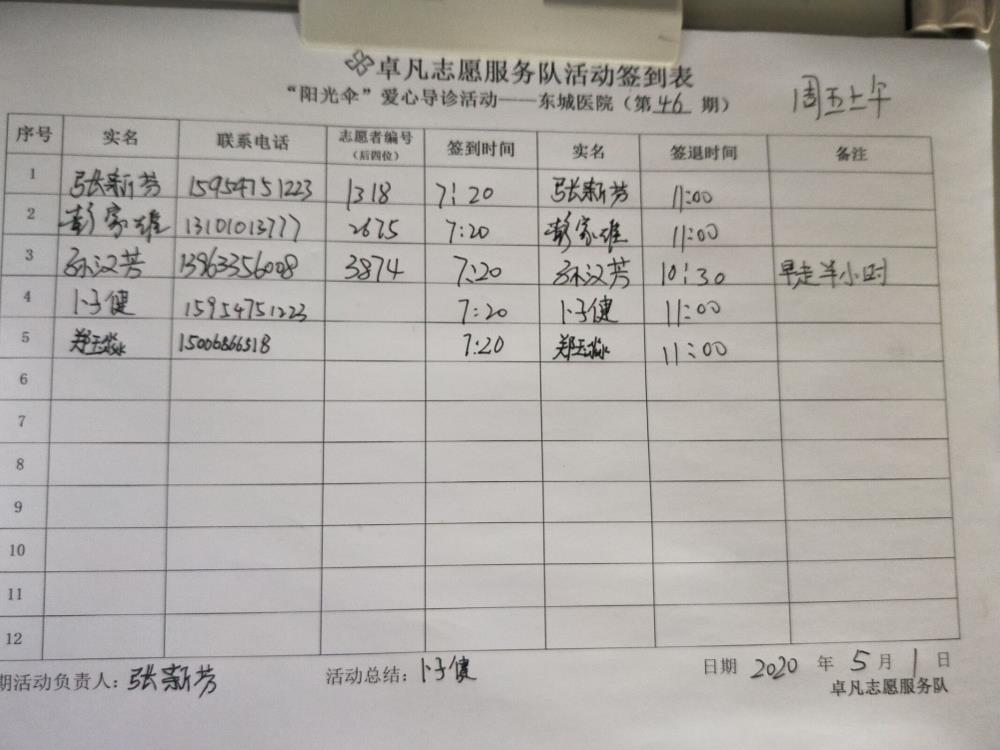 卓凡志愿服务队活动签到表
“阳光伞”爱心导诊活动——东城医院（第46期）
周五上午
序号 实名 联系电话 志愿者编号（后四位） 签到时间 实名 签退时间 备注
1 张新芳 15954751223 1318 7:20 张新芳 11:00
2 彭家雄 13101013777 2675 7:20 彭家雄 11:00
3 孙汉芳 13963356008 3874 7:20 孙汉芳 10:30 早走半小时
4 卜子健 15954751223 7:20 卜子健 11:00
5 郑玉淼 15006866518 7:20 郑玉淼 11:00
6
7
8
9
10
11
12
期活动负责人：张新芳 活动总结：卜子健 日期 2020 年 5 月 1 日
卓凡志愿服务队